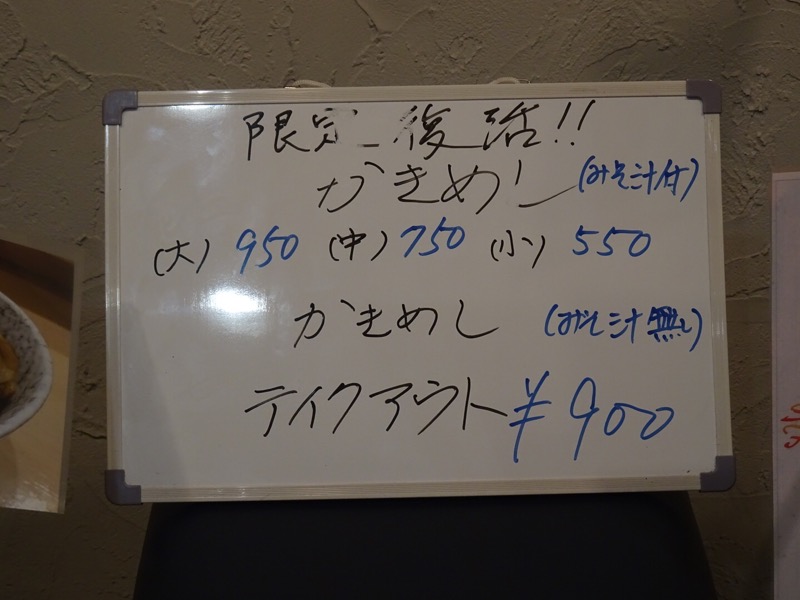 限定復活!!
かきめし(みそ汁付)
(大) 950 (中) 750 (小) 550
かきめし (みそ汁無し)
テイクアウト¥900